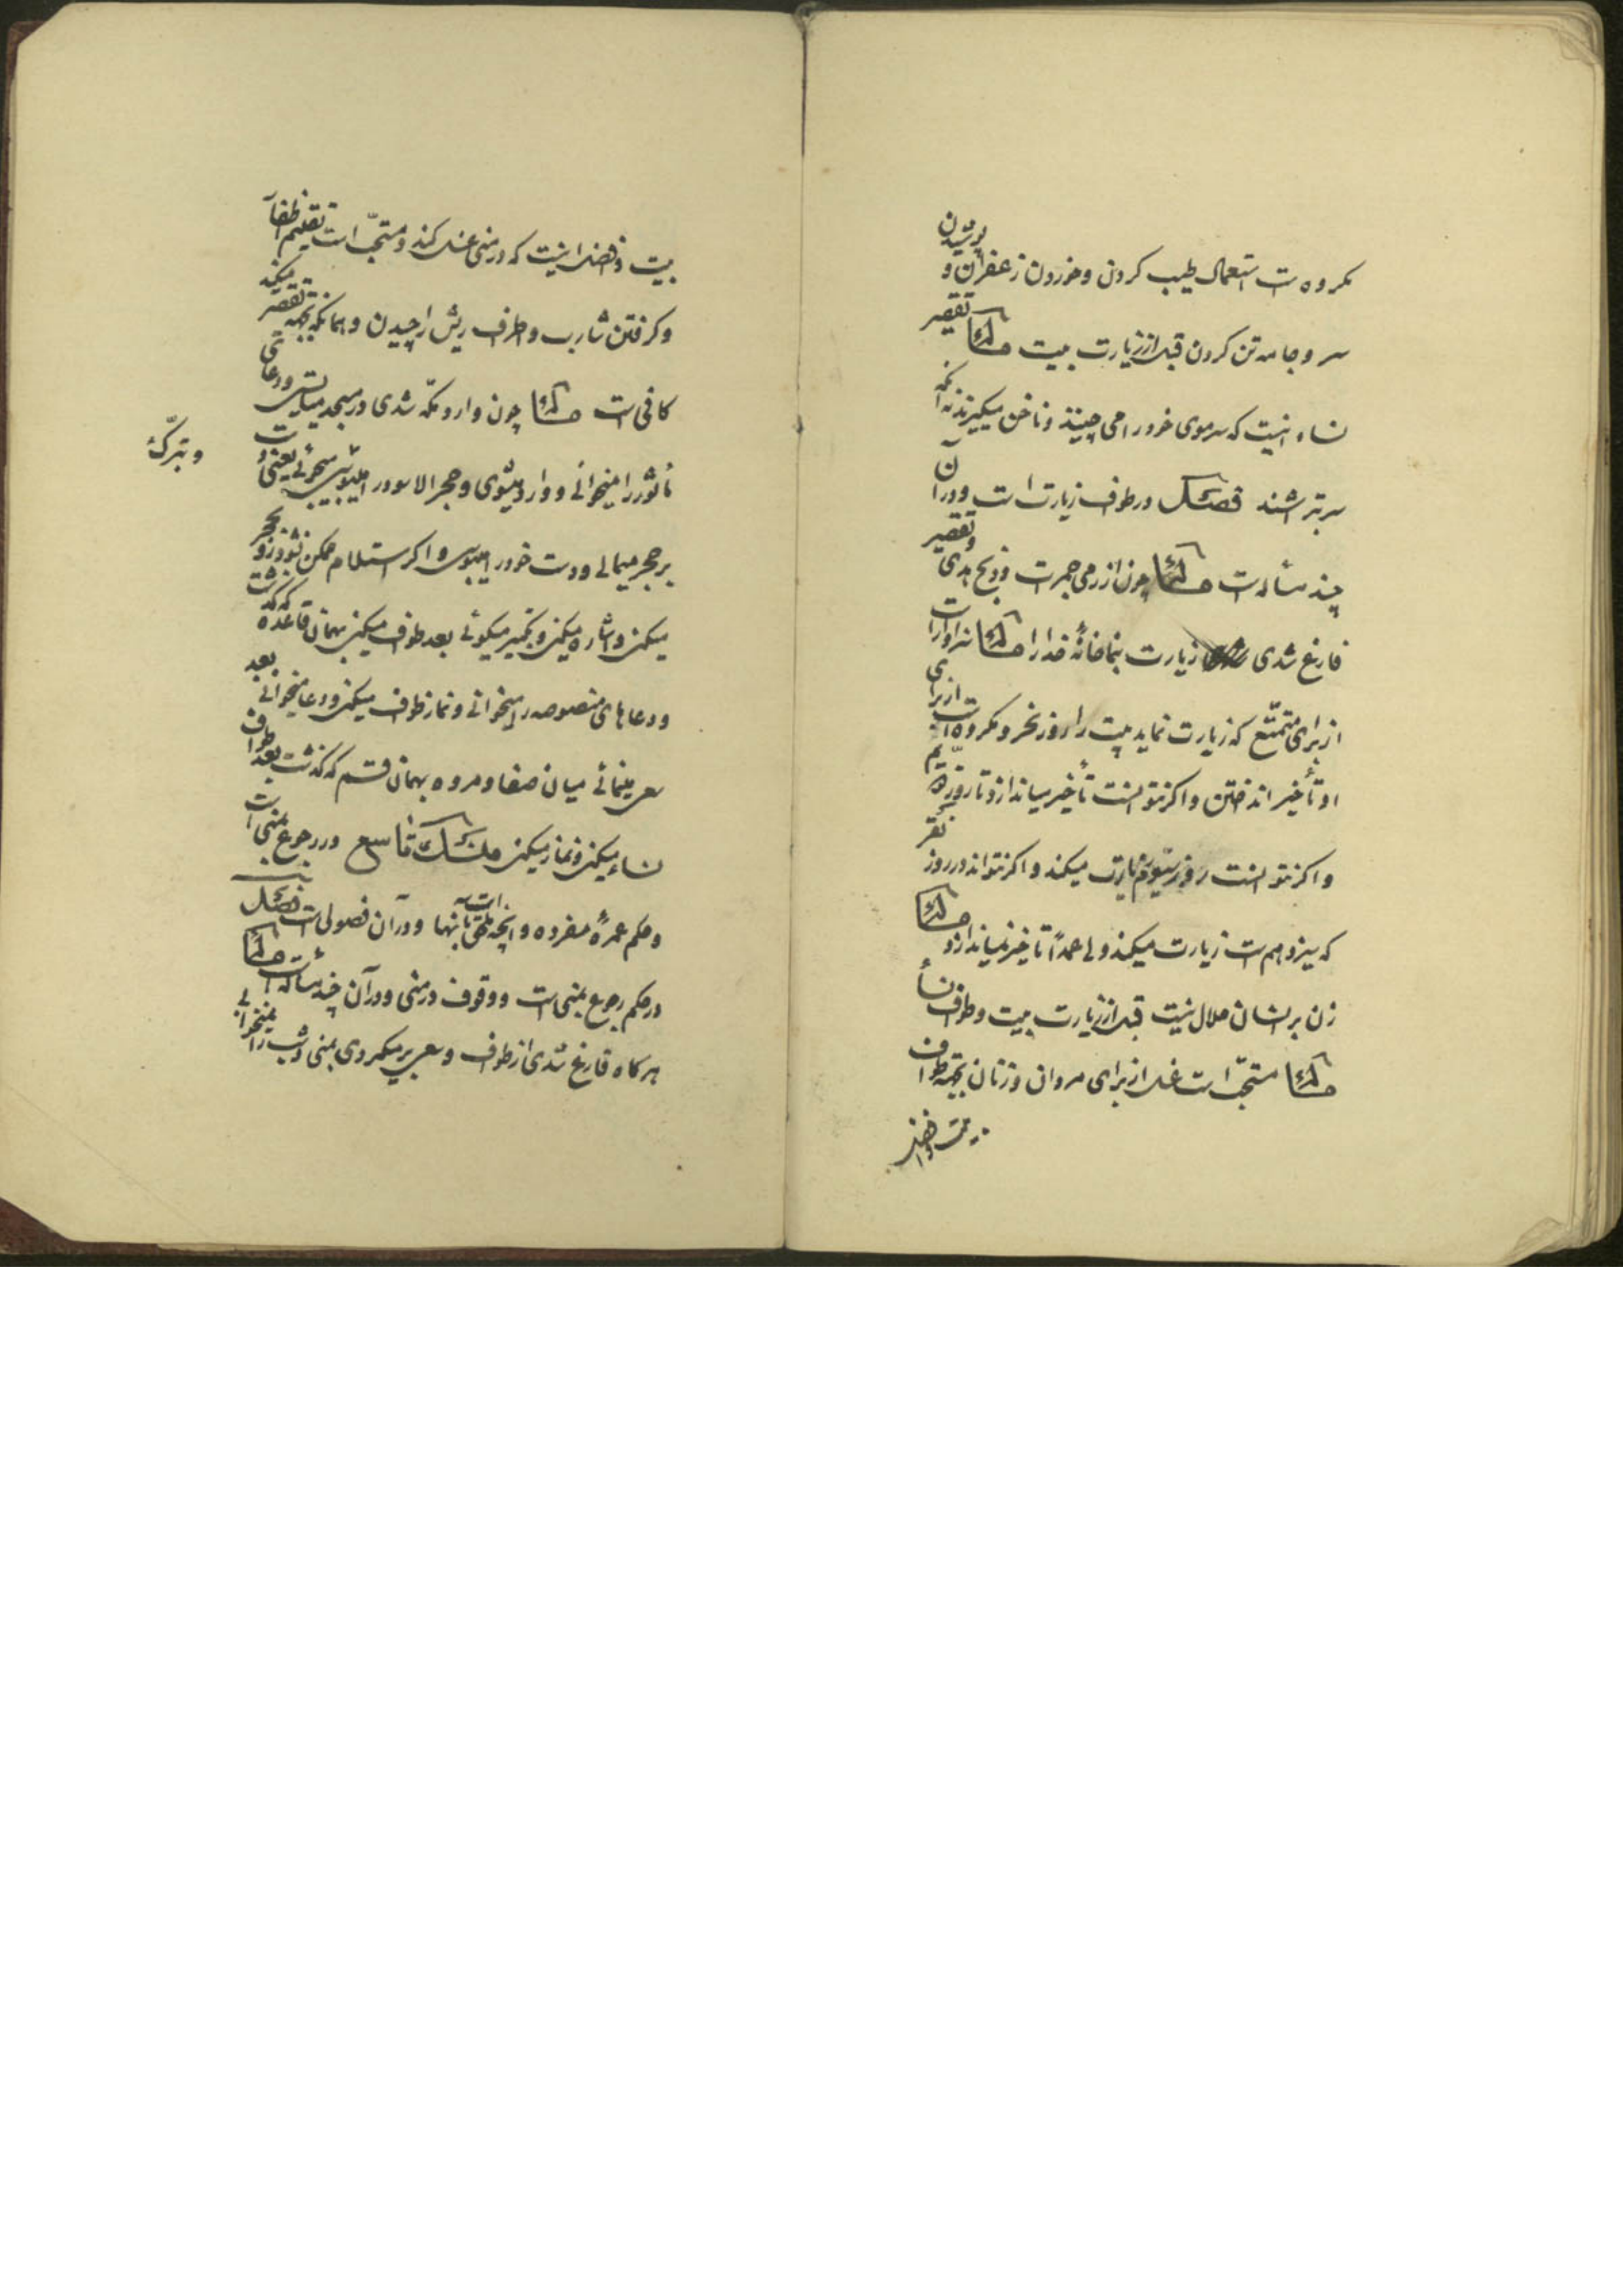 مکروه است استعمال طیب کردن و خوردن زعفران و پوشیدن
سر و جامه تن کردن قبل از زیارت بیت مسئلة تقصیر
نساء اینست که سر موی خود را می‌چینند و ناخن میگیرند نه آنکه
سر بتراشند فصل در طواف زیارت است و در آن
چند مسئله است مسئلة چون از رمی جمرت و ذبح هدی و تقصیر
فارغ شدی زیارت بنما خانهٔ خدا را مسئلة سزاوار است
از برای متمتّع که زیارت نماید بیت را روز نحر و مکروه است از برای
او تأخیر انداختن و اگر نتوانست تأخیر میاندازد تا روز
و اگر نتوانست روز سیّوم زیارت میکند و اگر نتواند در روز نفر
که سیزدهم است زیارت میکند ولی عمداً تا خیر نمیاندازد مسئلة
زن بر انسان حلال نیست قبل از زیارت بیت و طواف نساء
مسئلة مستحبّ است غسل از برای مردان و زنان بجهة طواف
بیت و افضل
بیت و افضل اینست که در منی غسل کند و مستحبّ است تقلیم اظفار
و گرفتن شارب و اطراف ریش را چیدن و همانکه بجهة تقصیر میکند
کافی است مسئلة چون وارد مکّه شدی در مسجد میایستی و دعای
مأثور را میخوانی و وارد میشوی و حجر الاسود را میبوسی
و تبرّک
بر حجر میمالی و دست خود را میبوسی و اگر استلام ممکن نشود رو بحجر
میکنی و اشاره میکنی و تکبیر میگوئی بعد طواف میکنی بهمان قاعده که گذشت
و دعاهای منصوصه را میخوانی و نماز طواف میکنی و دعا میخوانی بعد
سعی مینمائی میان صفا و مروه بهمان قسم که گذشت بعد طواف
نساء میکنی و نماز میکنی منسک تاسع در رجوع بمنی است
و حکم عمرهٔ مفرده و آنچه ملحق بآنها است و در آن فصولی است فصل
در حکم رجوع بمنی است و وقوف در منی و در آن چند مسئله است مسئلة
هر گاه فارغ شدی از طواف و سعی برمیگردی بمنی و شب را نمیخوابی